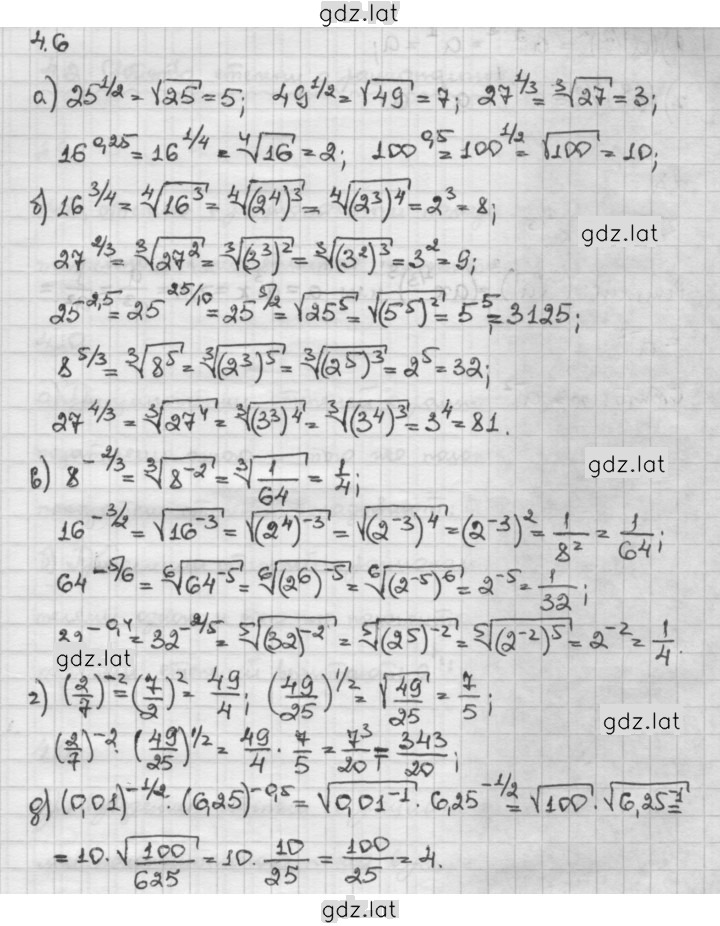 gdz.lat
4.6
а) 25^1/2 = √25 = 5; 49^1/2 = √49 = 7; 27^1/3 = ∛27 = 3;
16^0,25 = 16^1/4 = ∜16 = 2; 100^0,5 = 100^1/2 = √100 = 10;
б) 16^3/4 = ∜(16^3) = ∜((2^4)^3) = ∜((2^3)^4) = 2^3 = 8;
gdz.lat
27^2/3 = ∛(27^2) = ∛((3^3)^2) = ∛((3^2)^3) = 3^2 = 9;
25^2,5 = 25^25/10 = 25^5/2 = √(25^5) = √((5^5)^2) = 5^5 = 3125;
8^5/3 = ∛(8^5) = ∛((2^3)^5) = ∛((2^5)^3) = 2^5 = 32;
27^4/3 = ∛(27^4) = ∛((3^3)^4) = ∛((3^4)^3) = 3^4 = 81.
gdz.lat
в) 8^-2/3 = ∛(8^-2) = ∛(1/64) = 1/4;
16^-3/2 = √(16^-3) = √((2^4)^-3) = √((2^-3)^4) = (2^-3)^2 = 1/8^2 = 1/64;
64^-5/6 = ⁶√(64^-5) = ⁶√((2^6)^-5) = ⁶√((2^-5)^6) = 2^-5 = 1/32;
^-0,4 = 32^-2/5 = ⁵√((32)^-2) = ⁵√((2^5)^-2) = ⁵√((2^-2)^5) = 2^-2 = 1/4.
gdz.lat
г) (2/7)^-2 = (7/2)^2 = 49/4; (49/25)^1/2 = √(49/25) = 7/5;
gdz.lat
(2/7)^-2 · (49/25)^1/2 = 49/4 · 7/5 = 7^3/20 = 343/20;
д) (0,01)^-1/2 · (6,25)^-0,5 = √(0,01^-1) · 6,25^-1/2 = √100 · √(6,25^-1) =
= 10 · √(100/625) = 10 · 10/25 = 100/25 = 4.
gdz.lat